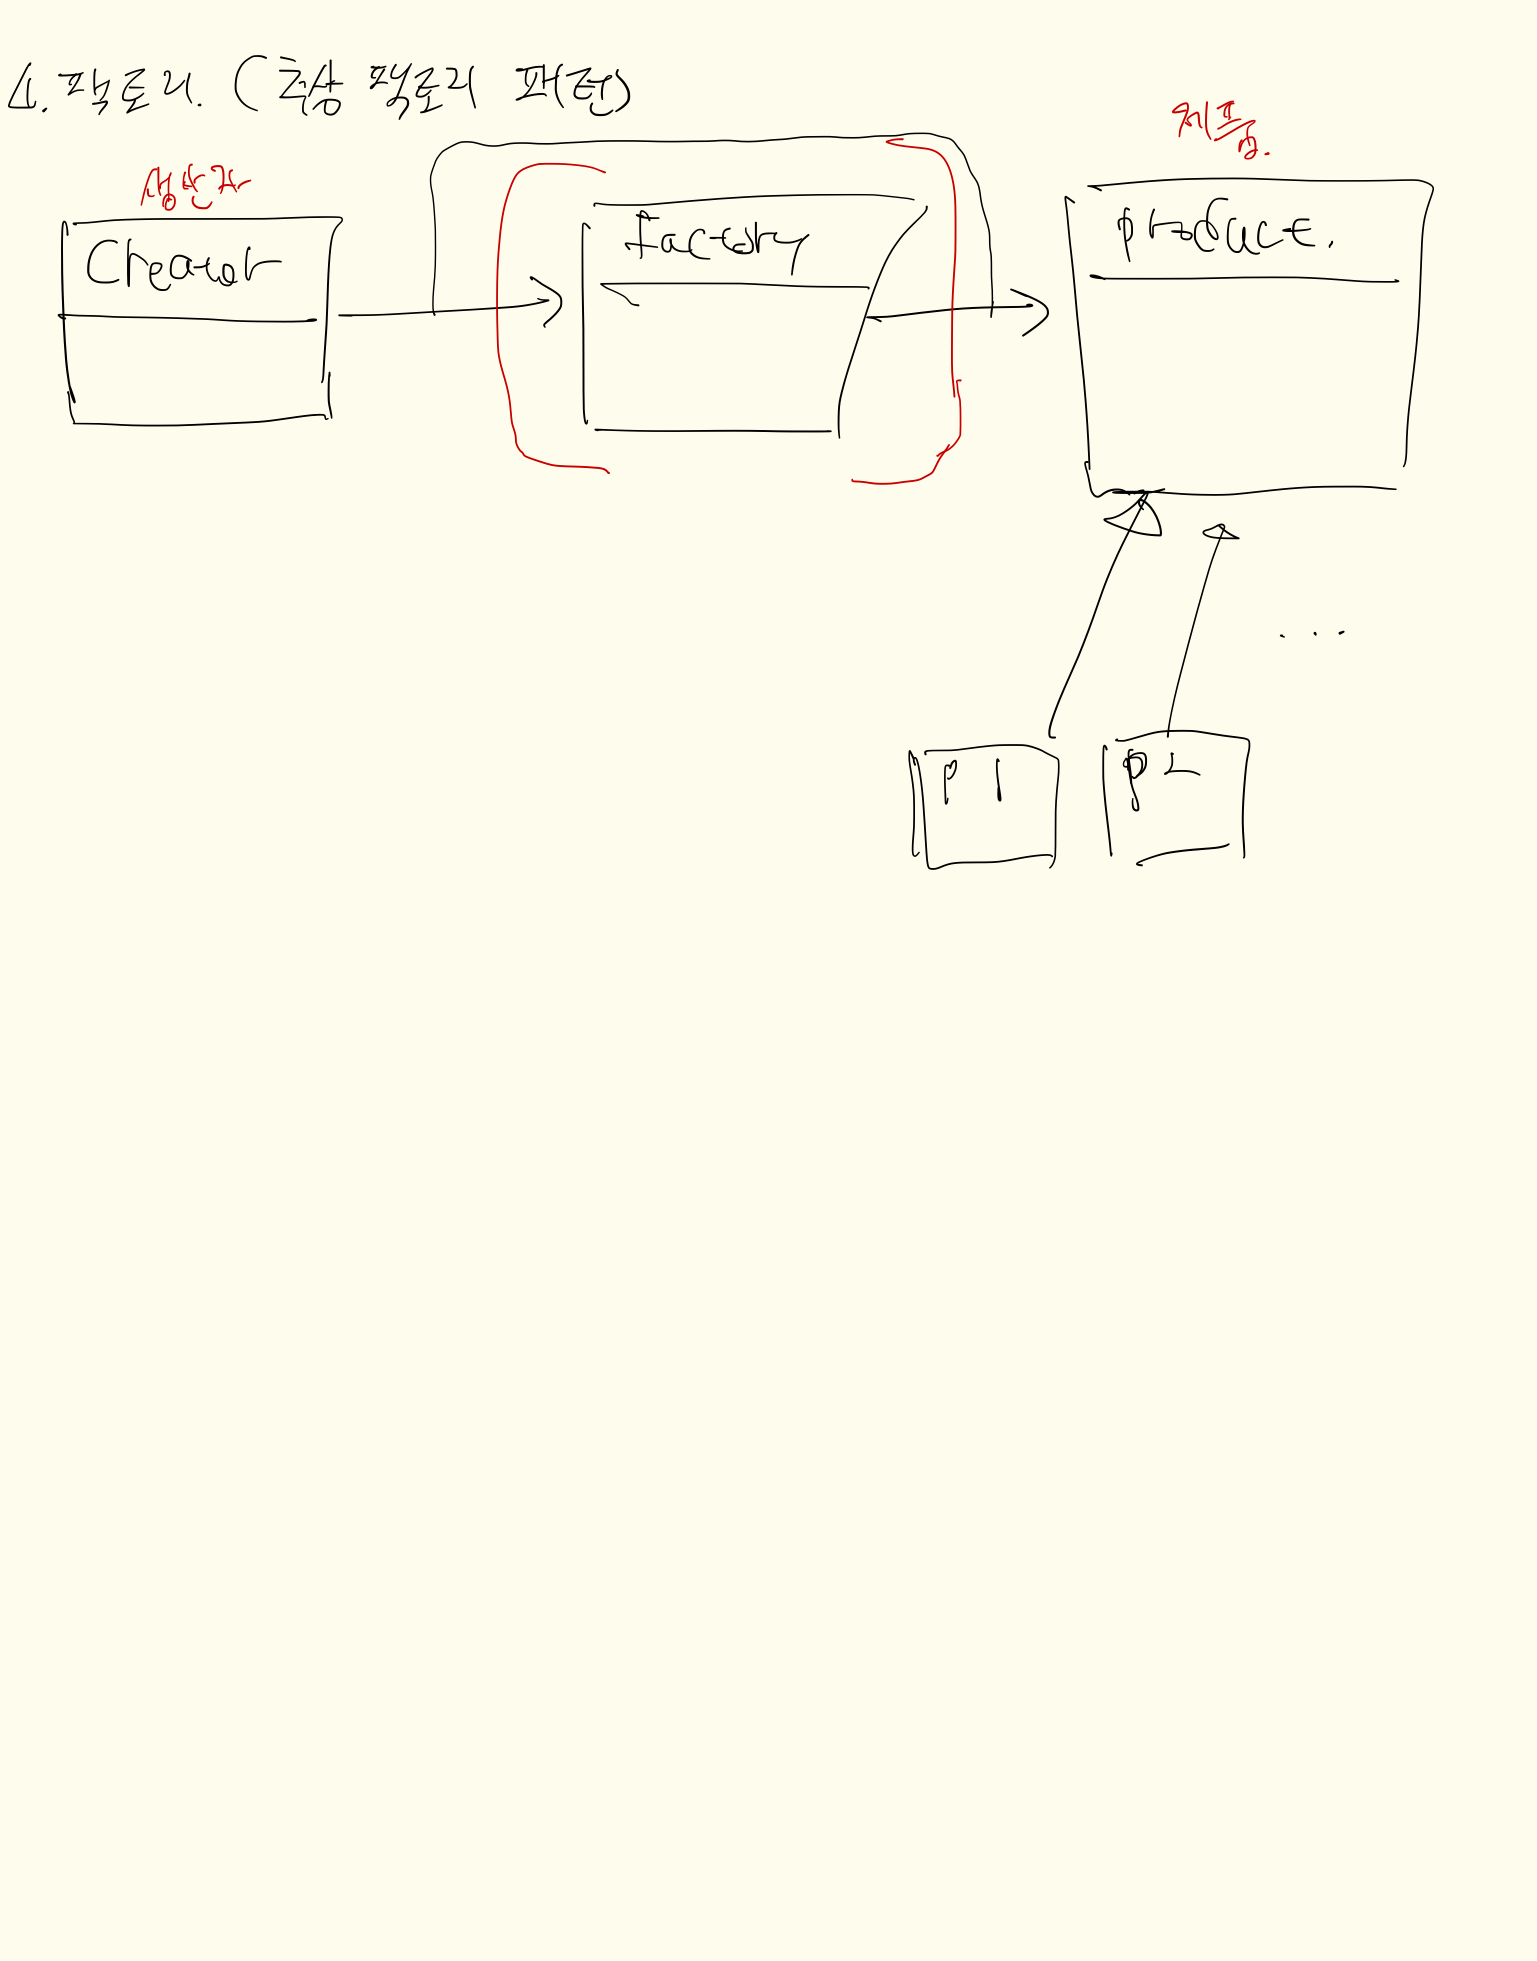 4. 팩토리. (추상 팩토리 패턴)
생산자
제품.
Creator
factory
product.
P 1
P 2
...